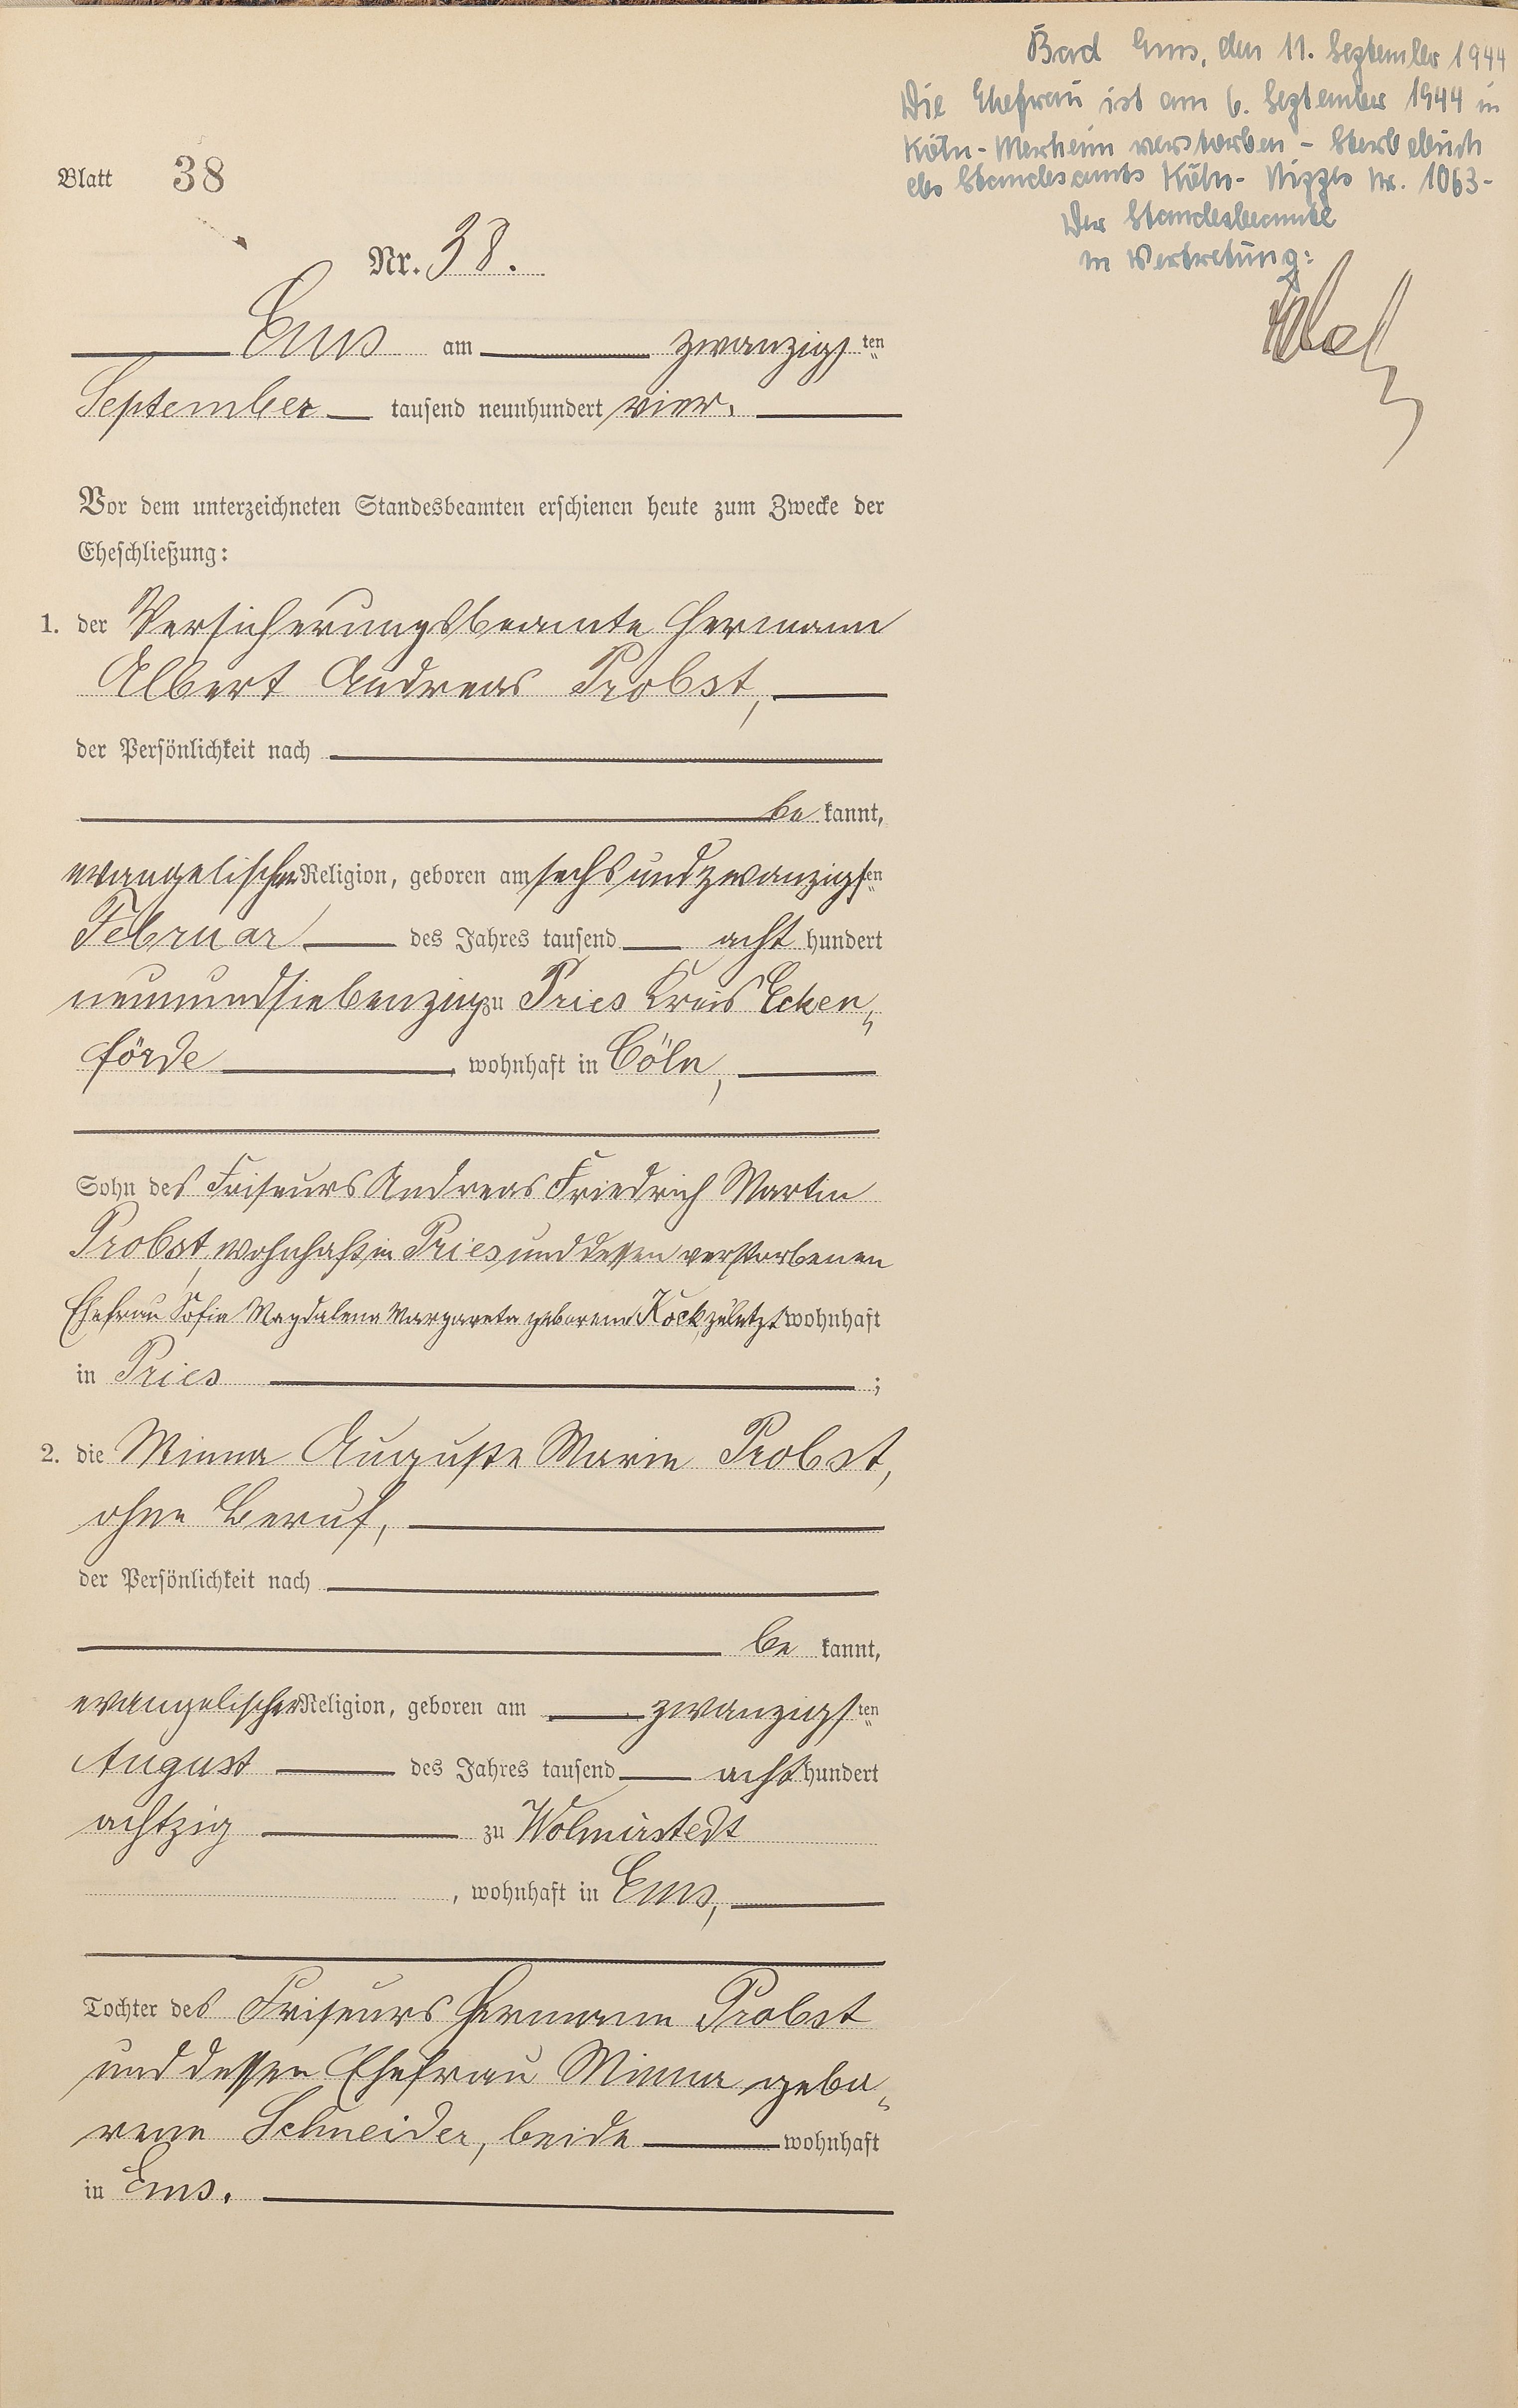 Blatt 38
Nr. 38.
Ems am zwanzigsten
September tausend neunhundert vier.
Vor dem unterzeichneten Standesbeamten erschienen heute zum Zwecke der
Eheschließung:
1. der Versicherungsbeamte Hermann
Albert Andreas Probst,
der Persönlichkeit nach
be kannt,
evangelischer Religion, geboren am sechsundzwanzigsten
Februar des Jahres tausend acht hundert
neunundsiebenzig zu Pries Kreis Ecken„
förde, wohnhaft in Cöln,
Sohn des Friseurs Andreas Friedrich Martin
Probst, wohnhaft in Pries und dessen verstorbenen
Ehefrau Sofia Magdalena Margareta geborene Kock, zuletzt wohnhaft
in Pries ;
2. die Minna Auguste Marie Probst,
ohne Beruf,
der Persönlichkeit nach
be kannt,
evangelischer Religion, geboren am zwanzigsten
August des Jahres tausend acht hundert
achtzig zu Wolmirstedt
, wohnhaft in Ems,
Tochter des Friseurs Hermann Probst
und dessen Ehefrau Minna gebo„
rene Schneider, beide wohnhaft
in Ems.
Bad Ems, den 11. September 1944
Die Ehefrau ist am 6. September 1944 in
Köln-Merheim verstorben - Sterbebuch
des Standesamts Köln-Nippes Nr. 1063-
Der Standesbeamte
in Vertretung: